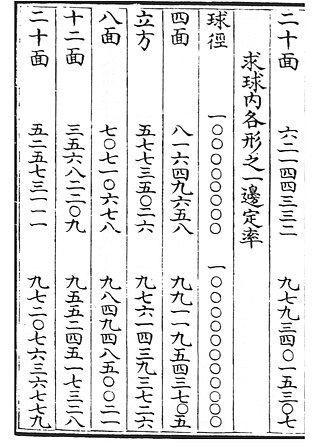 二十面　六二一四四三三二　九七九三四〇一五三〇七
求球内各形之一邊定率
球徑　一〇〇〇〇〇〇〇〇　一〇〇〇〇〇〇〇〇〇〇
四面　八一六四九六五八　九九一一九五四三七〇五
立方　五七七三五〇二六　九七六一四三九三七二六
八面　七〇七一〇六七八　九八四九四八五〇〇二一
十二面　三五六八二二〇九　九五五二四五一七三二八
二十面　五二五七三一一一　九七二〇七六三六七七九